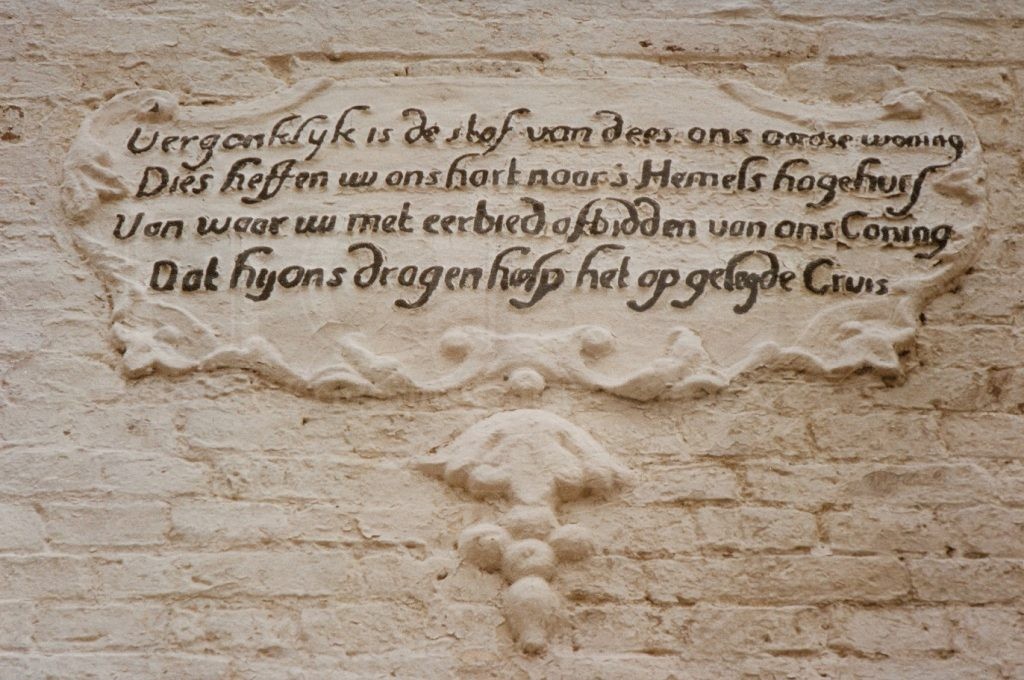 Vergonklyk is de stof van dees ons aardse woning
Dies heffen uw ons hart naar's Hemels hogehuis
Van waar uw met eerbied afbidden van ons Coning
Dat hy ons dragen hulp het op gelegde Cruis